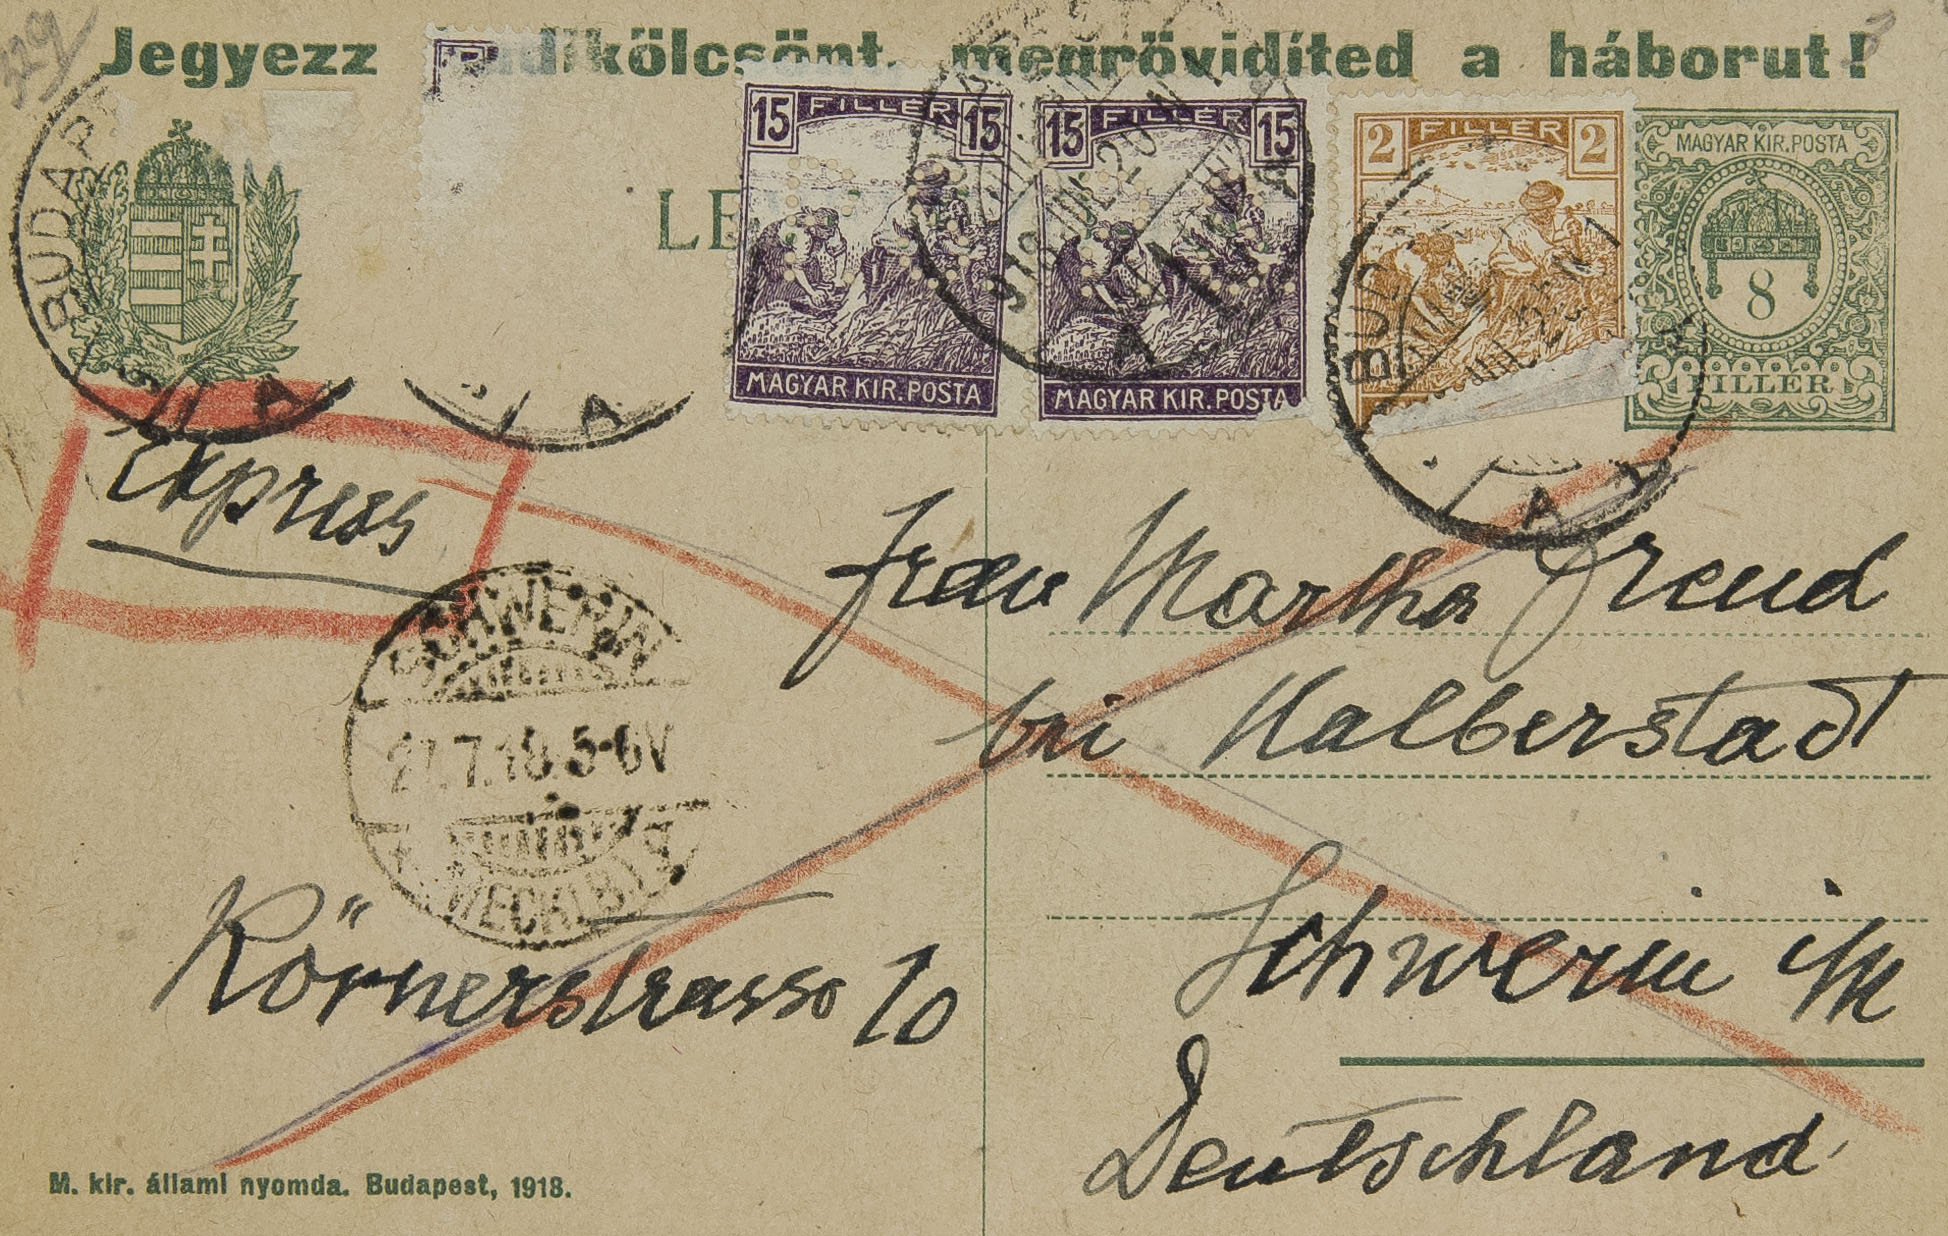 329
Jegyezz hadikölcsönt, megrövidíted a háborut!
15 FILLÉR 15
MAGYAR KIR. POSTA
15 FILLÉR 15
MAGYAR KIR. POSTA
2 FILLÉR 2
MAGYAR KIR. POSTA
8
FILLÉR
LE
BUDAP
BUD
Express
Frau Martha Freud
bei Halberstadt
SCHWERIN
27.7.18.5-6V
MECKLB
Körnerstrasse 10
Schwerin i/M
Deutschland
M. kir. állami nyomda. Budapest, 1918.